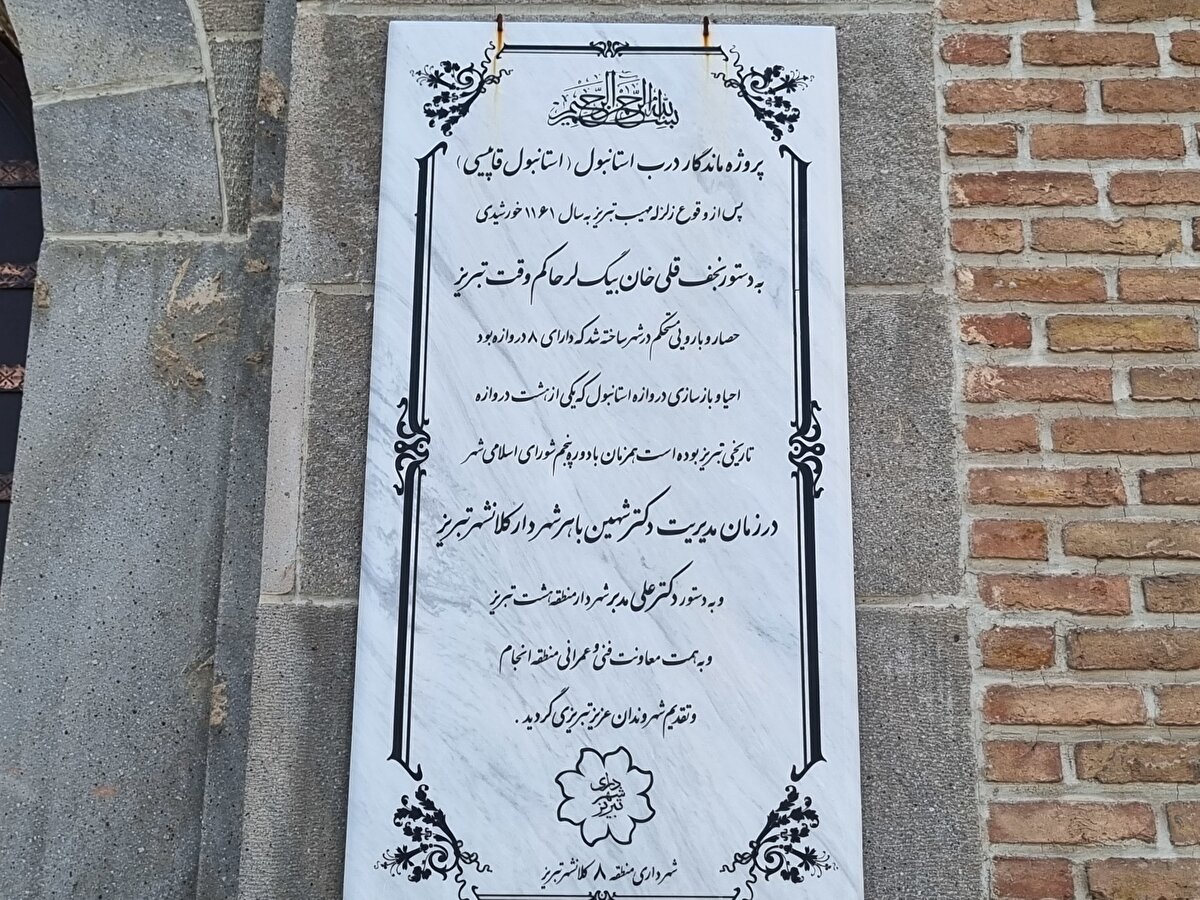 بسم الله الرحمن الرحیم
پروژه ماندگار درب استانبول (استانبول قاپیسی)
پس از وقوع زلزله مهیب تبریز به سال ۱۱۶۱ خورشیدی
به دستور نجف قلی خان بیگ لر حاکم وقت تبریز
حصار و بارویی مستحکم در شهر ساخته شد که دارای ۸ دروازه بود
احیا و بازسازی دروازه استانبول که یکی از هشت دروازه
تاریخی تبریز بوده است همزمان با دوره پنجم شورای اسلامی شهر
در زمان مدیریت دکتر شهین باهر شهردار کلانشهر تبریز
و به دستور دکتر علی مدبر شهردار منطقه هشت تبریز
و به همت معاونت فنی و عمرانی منطقه انجام
و تقدیم شهروندان عزیز تبریزی گردید .
شهرداری
تبریز
شهرداری منطقه ۸ کلانشهر تبریز